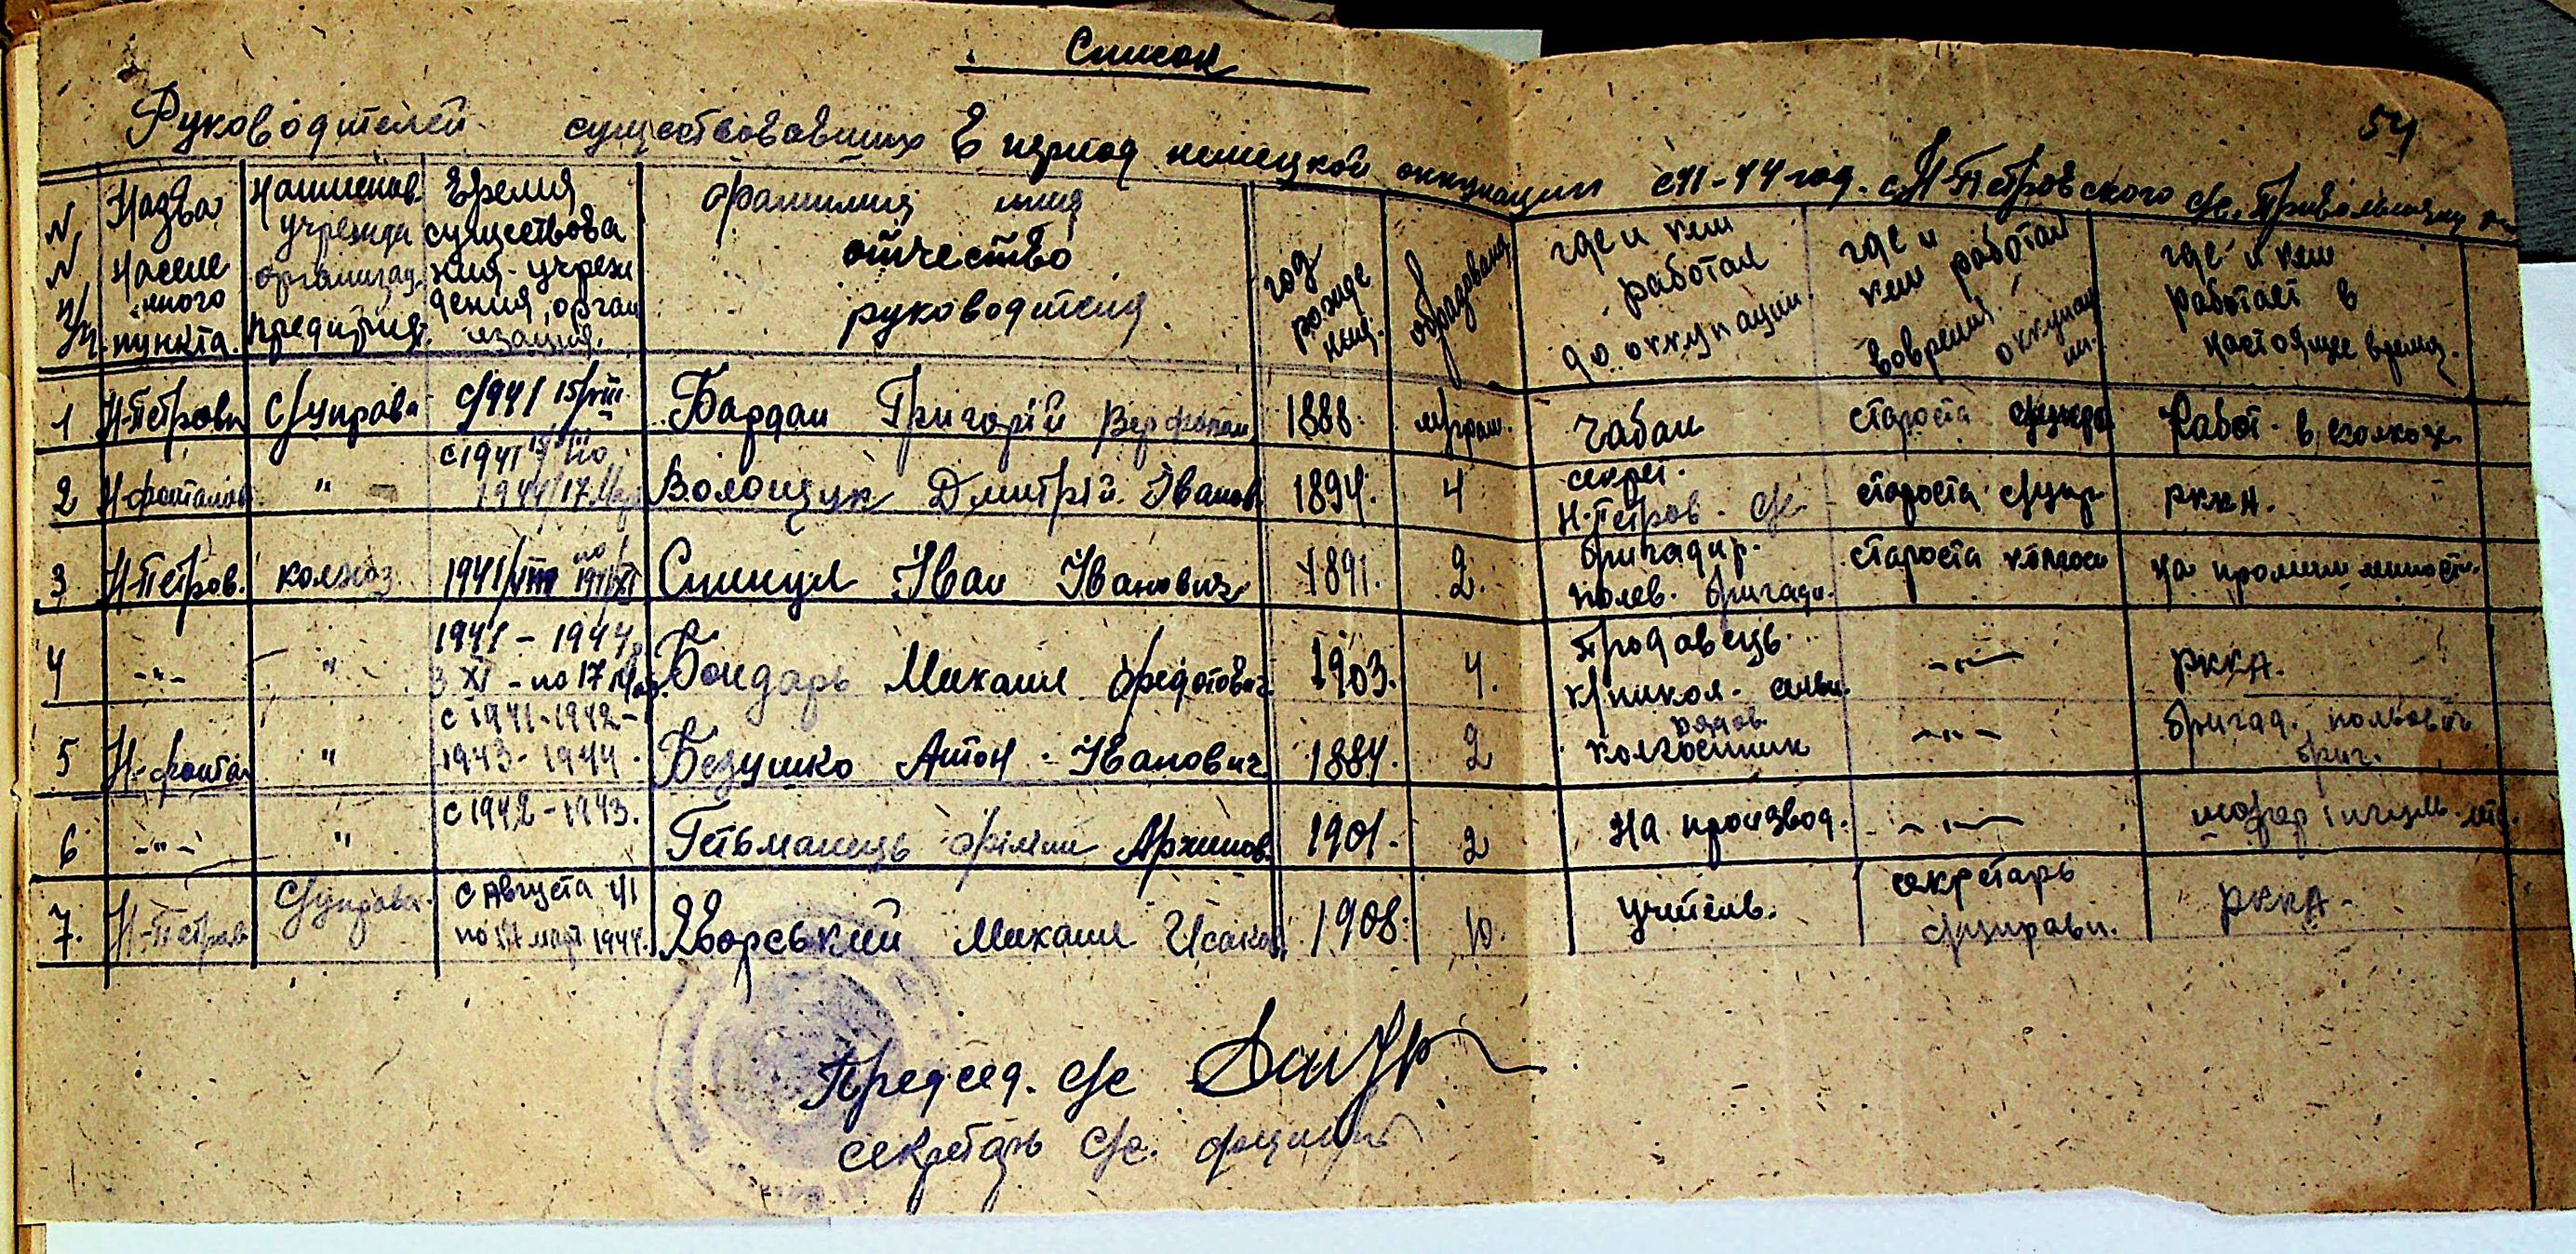 Список
54
Руководителей существовавших в период немецкой оккупации с 41-44 год. с Н-Петровского с/с. Привольнян
N N п/п.
Назва населенного пункта.
Наименов. учрежд организац. предприят.
Время существования учреждения, организация.
фамилия имя отчество руководителя.
год рождения.
образование
где и кем работал до оккупации
где и кем работал вовремя оккупации.
где и кем работает в настоящее время.
1 Н-Петровк С/управа с/1941 15/VIII Бардан Григорій 1888. м/грам. Чабан староста Работ. в колхозе.
2 Н-фонтанов. " с 1941 по 1944/17 Мар Волощук Дмитрій Іванов 1894. 4 секрет. Н.Петров. с/с. староста с/упр РККА.
3 Н-Петров. колхоз 1941/VIII по 1941/XI Спинул Іван Іванович 1891. 2. бригадир. полев. бригади. староста колгосп на промишленности.
4 -"- " 1941-1944 3 XI - по 17 Мар. Бондарь Михаил Федотович 1903. 4. Продавець. -"- РККА.
5 Н-фонта " с 1941-1942- 1943-1944. Безушко Антон Іванович 1884. 2 рядов. колгоспник -"- бригад. польовой бриг.
6 -"- " с 1942-1943. Гетьманець Архипов. 1901. 2 На производ. -"- шофер
7. Н-Петров С/управа. с Августа 41 по 17 март 1944. Яворський Михаил Исаков. 1908. 10. учитель. секретарь с/управи. РККА.
Председ. с/с
секретарь с/с.